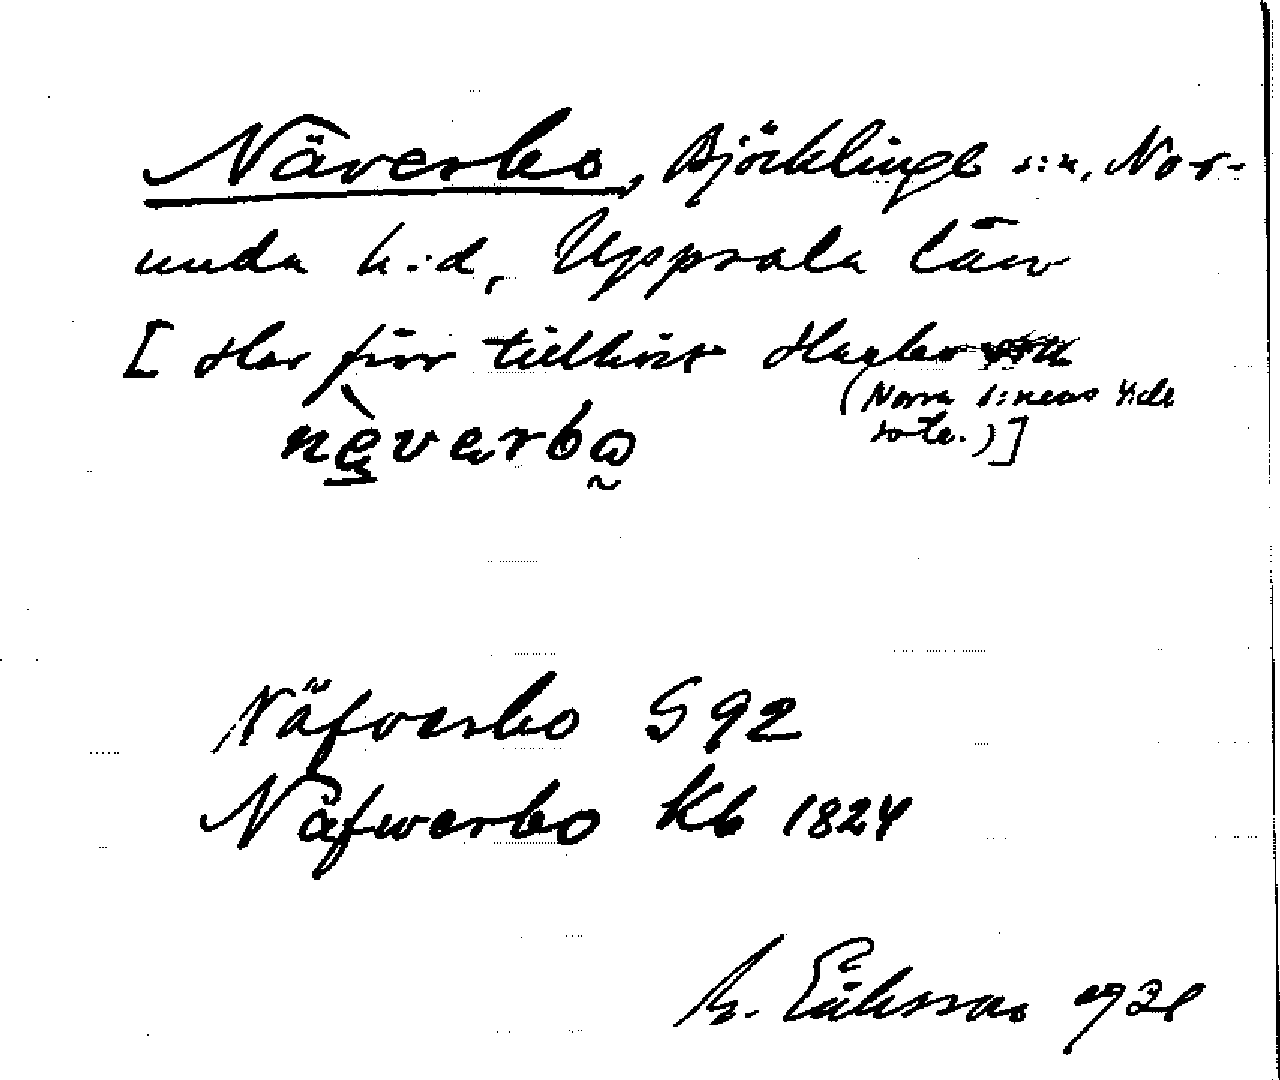 Näverbo, Björklinge s:n, Nor-
unda h:d, Uppsala län
[Har förr tillhört Hagbo
(Norra s:nens
]
nèverbo
Näfverbo S 92
Näfwerbo Kb 1824
M. Eriksson 1931